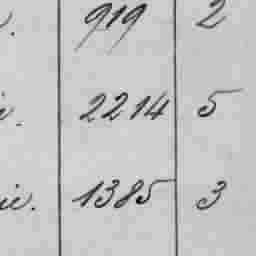 919 2
2214 5
ie. 1385 3